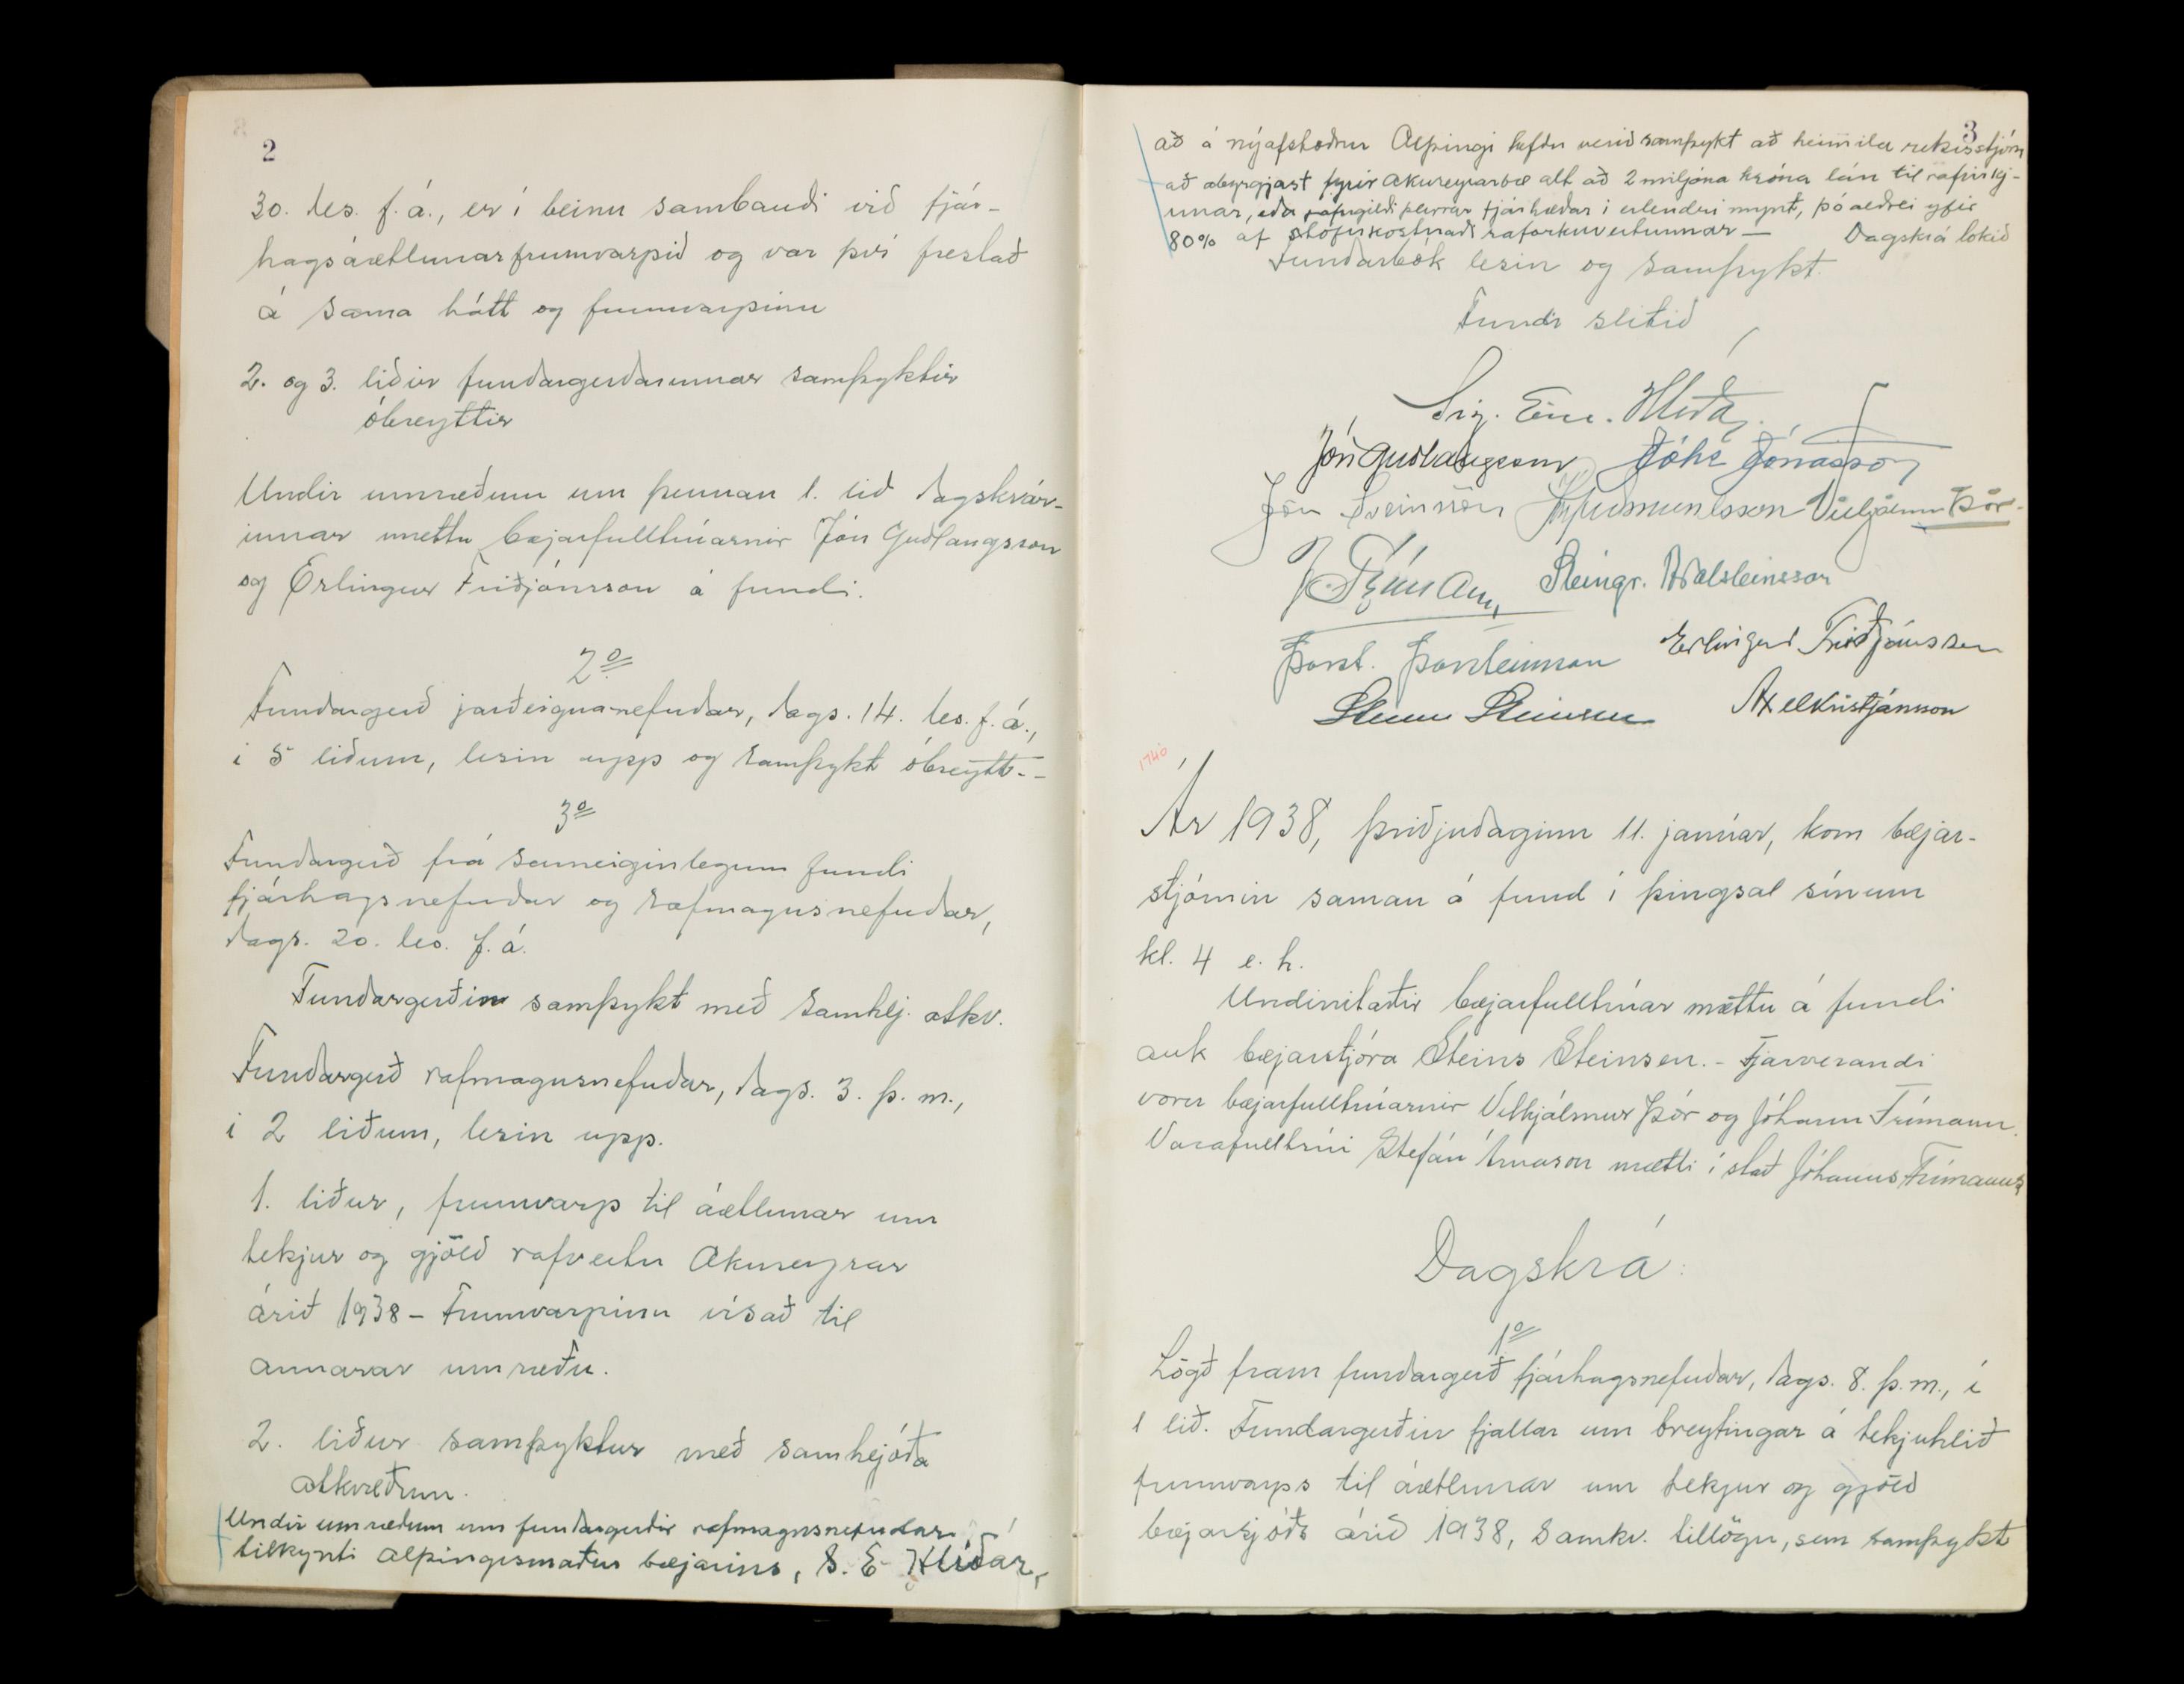 2
30. des. f. á., er í beinu sambandi við fjár-
hagsáætlunarfrumvarpið og var því frestað
á sama hátt og frumvarpinu
2. og 3. liðir fundargerðarinnar samþyktir
óbreyttir
Undir umræðum um þennan 1. lið dagskrár-
innar mættu bæjarfulltrúarnir Jón Guðlaugsson
og Erlingur Friðjónsson á fundi.
2º
Fundargerð jarðeignanefndar, dags. 14. des. f. á.,
í 5 liðum, lesin upp og samþykt óbreytt. -
3º
Fundargerð frá sameiginlegum fundi
fjárhagsnefndar og rafmagnsnefndar,
dags. 20. des. f. á.
Fundargerðin samþykt með samhlj. atkv.
Fundargerð rafmagnsnefndar, dags. 3. þ. m.,
í 2 liðum, lesin upp.
1. liður, frumvarp til áætlunar um
tekjur og gjöld rafveitu Akureyrar
árið 1938 - Frumvarpinu vísað til
annarar umræðu.
2. liður samþyktur með samhljóða
atkvæðum.
Undir umræðum um fundargerðir rafmagnsnefndar
tilkynti alþingismaður bæjarins, S. E. Hlíðar,
3
að á nýafstöðnu Alþingi hefðu verið samþykt að heimila ríkisstjórn
að ábyrgjast fyrir Akureyrarbæ alt að 2 miljóna króna lán til rafvirkj-
unar, eða jafngildi þeirrar fjárhæðar í erlendri mynt, þó aldrei yfir
80% af stofnkostnaði raforkuveitunnar — Dagskrá lokið
Fundarbók lesin og samþykt.
Fundi slitið
Sig. Ein. Hlíðar
Jón Guðlaugsson Jóhs Jónasson
Jón Sveinsson Guðmundsson Vilhjálmur Þór
J. Frímann Steingr. Aðalsteinsson
Þorst. Þorsteinsson Erlingur Friðjónsson
Steinn Steinsen Axel Kristjánsson
1740
Ár 1938, þriðjudaginn 11. janúar, kom bæjar-
stjórnin saman á fund í þingsal sínum
kl. 4 e. h.
Undirritaðir bæjarfulltrúar mættu á fundi
auk bæjarstjóra Steins Steinsen. - Fjarverandi
voru bæjarfulltrúarnir Vilhjálmur Þór og Jóhann Frímann.
Varafulltrúi Stefán Árnason mætti í stað Jóhanns Frímanns
Dagskrá:
1º
Lögð fram fundargerð fjárhagsnefndar, dags. 8. þ. m., í
1 lið. Fundargerðin fjallar um breytingar á tekjuhlið
frumvarps til áætlunar um tekjur og gjöld
bæjarsjóðs árið 1938, samkv. tillögu, sem samþykt